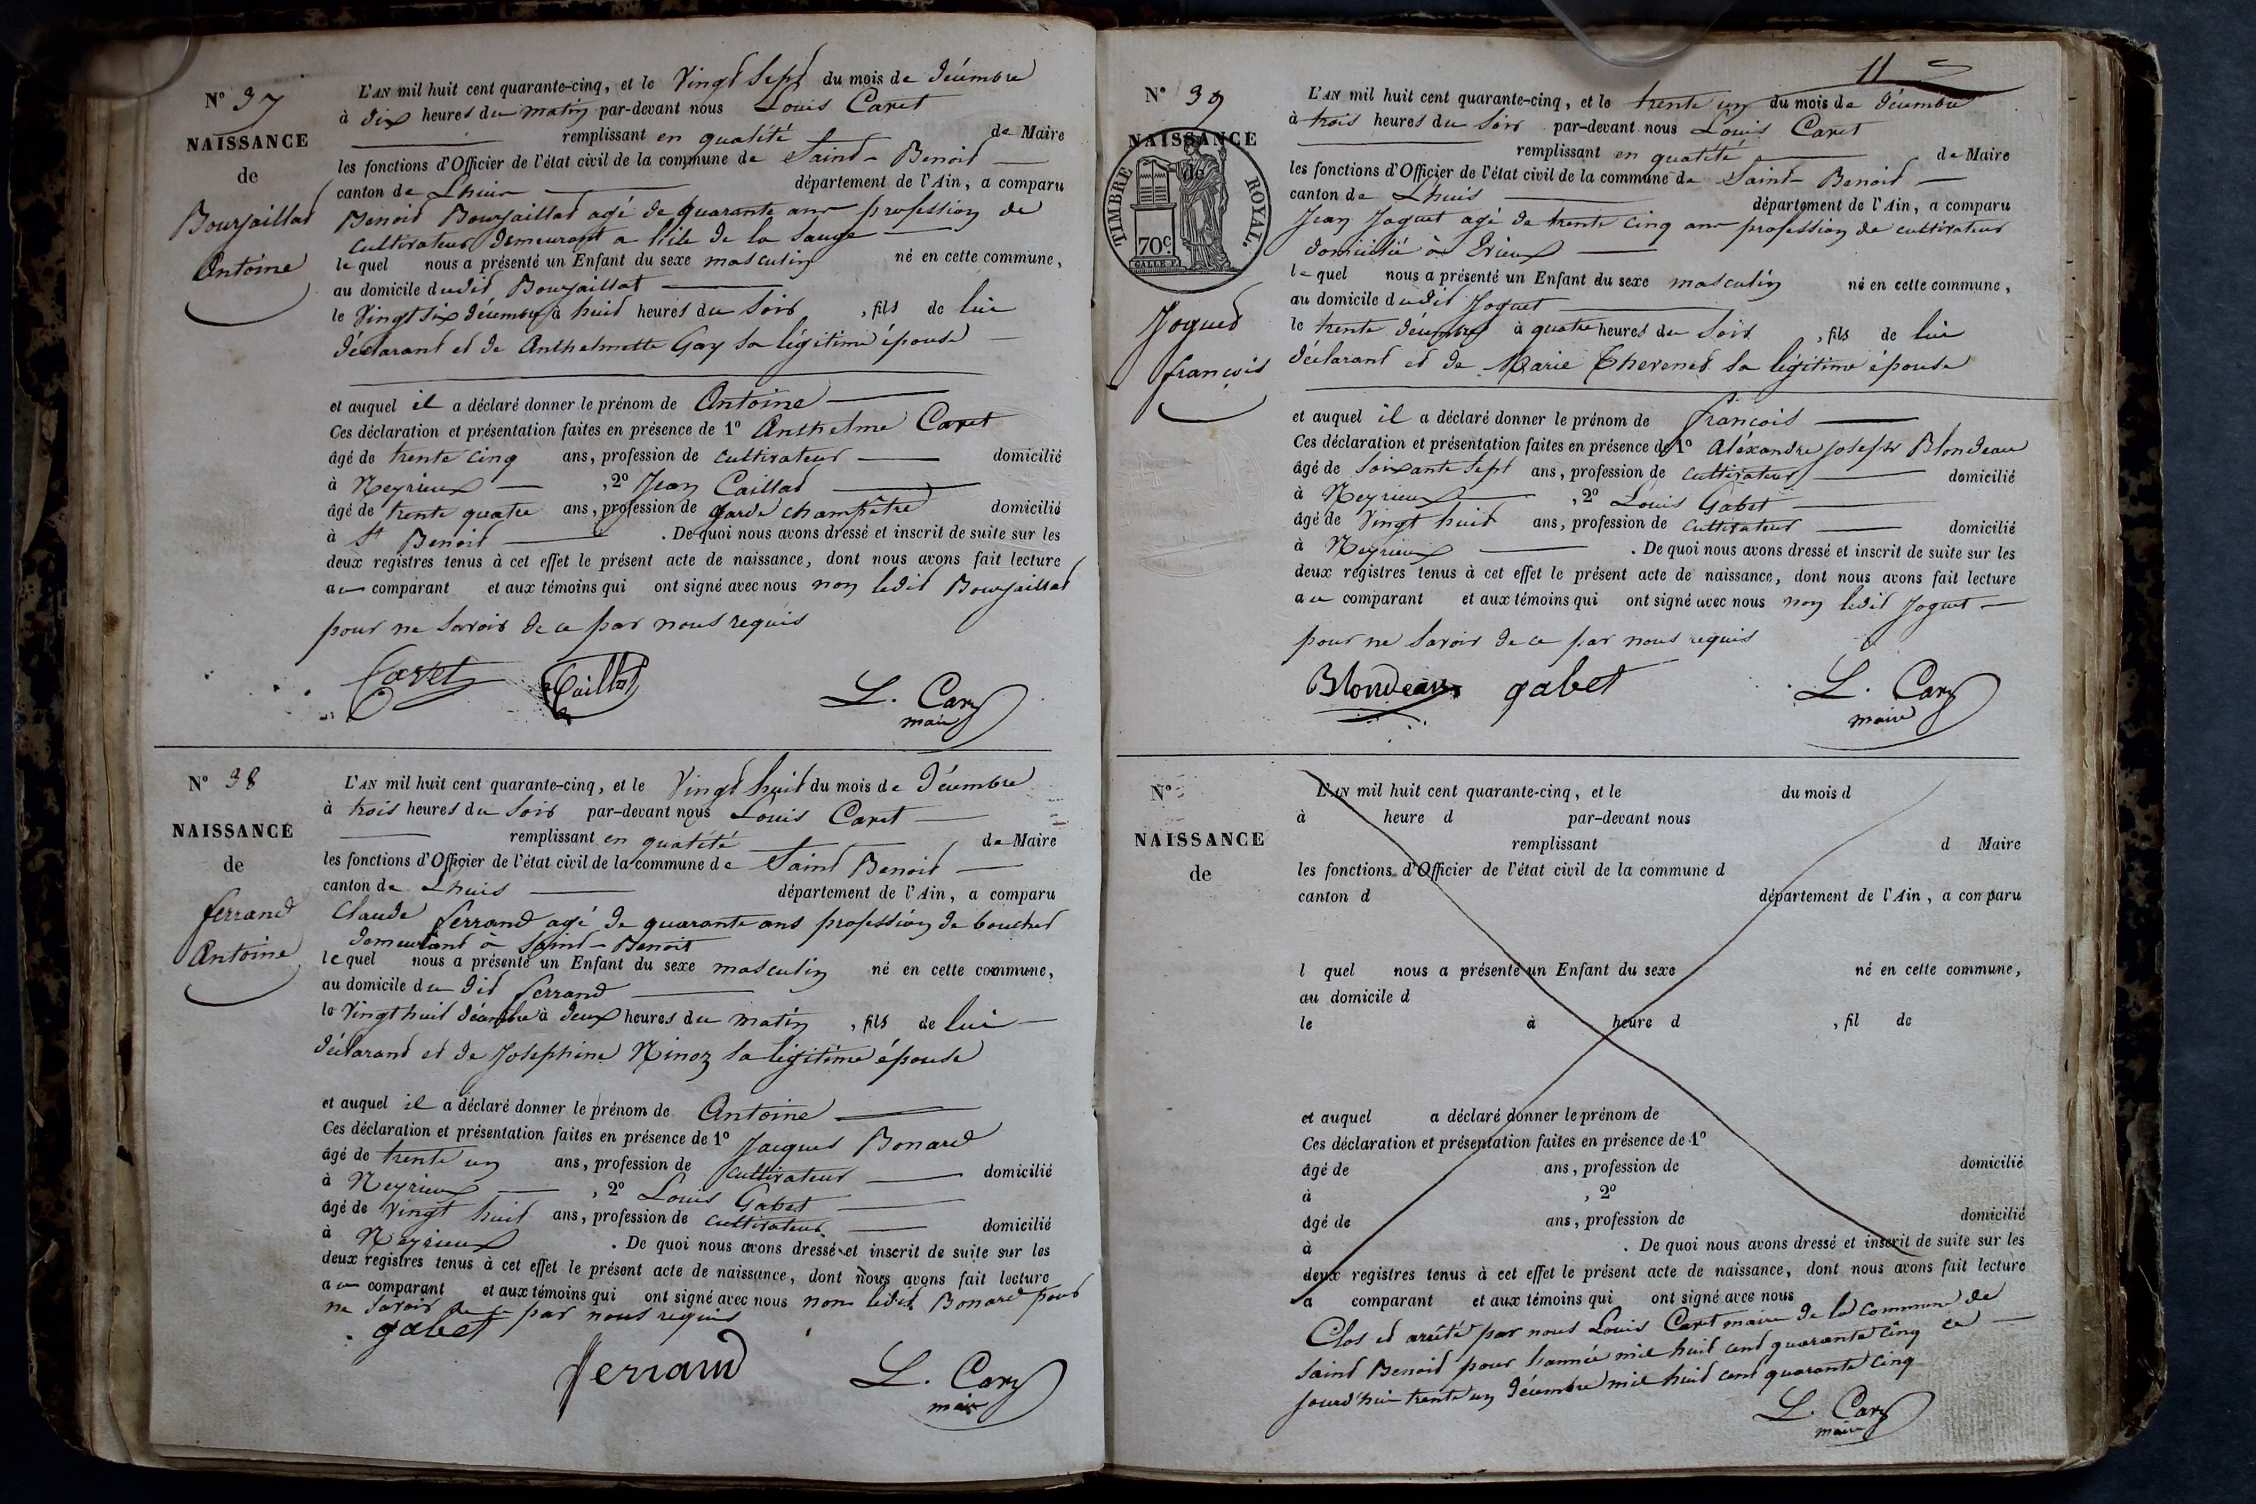 N° 37
NAISSANCE
de
Bourjaillat
Antoine
L'AN mil huit cent quarante-cinq, et le Vingt Sept du mois de décembre
à dix heures du matin par-devant nous Louis Caret
remplissant en qualité de Maire
les fonctions d'Officier de l'état civil de la commune de Saint-Benoit
canton de Lhuis département de l'Ain, a comparu
Benoit Bourjaillat agé de quarante ans profession de
cultivateur demeurant a l'ile de la Sauge
lequel nous a présenté un Enfant du sexe masculin né en cette commune,
au domicile dudit Bourjaillat
le Vingt six décembre à huit heures du Soir, fils de lui
déclarant et de Anthelmette Gay sa légitime épouse
et auquel il a déclaré donner le prénom de Antoine
Ces déclaration et présentation faites en présence de 1° Anthelme Caret
âgé de trente cinq ans, profession de cultivateur domicilié
à Neyrieux, 2° Jean Caillat
âgé de trente quatre ans, profession de garde champêtre domicilié
à St Benoit. De quoi nous avons dressé et inscrit de suite sur les
deux registres tenus à cet effet le présent acte de naissance, dont nous avons fait lecture
au comparant et aux témoins qui ont signé avec nous non ledit Bourjaillat
pour ne savoir de ce par nous requis
Caret Caillat L. Caret
maire
N° 38
NAISSANCE
de
ferrand
Antoine
L'AN mil huit cent quarante-cinq, et le Vingt huit du mois de décembre
à trois heures du Soir par-devant nous Louis Caret
remplissant en qualité de Maire
les fonctions d'Officier de l'état civil de la commune de Saint Benoit
canton de Lhuis département de l'Ain, a comparu
Claude ferrand agé de quarante ans profession de boucher
demeurant à Saint-Benoit
lequel nous a présenté un Enfant du sexe masculin né en cette commune,
au domicile du dit ferrand
le Vingt huit décembre à deux heures du matin, fils de lui
déclarant et de Josephine Ninoz sa légitime épouse
et auquel il a déclaré donner le prénom de Antoine
Ces déclaration et présentation faites en présence de 1° Jacques Bonard
âgé de trente un ans, profession de cultivateur domicilié
à Neyrieux, 2° Louis Gabet
âgé de vingt huit ans, profession de cultivateur domicilié
à Neyrieux. De quoi nous avons dressé et inscrit de suite sur les
deux registres tenus à cet effet le présent acte de naissance, dont nous avons fait lecture
au comparant et aux témoins qui ont signé avec nous non ledit Bonard pour
ne savoir de ce par nous requis
gabet
ferrand L. Caret
maire
11
N° 39
NAISSANCE
de
TIMBRE ROYAL.
70c
Joguet
françois
L'AN mil huit cent quarante-cinq, et le trente un du mois de décembre
à trois heures du Soir par-devant nous Louis Caret
remplissant en qualité de Maire
les fonctions d'Officier de l'état civil de la commune de Saint-Benoit
canton de Lhuis département de l'Ain, a comparu
Jean Joguet agé de trente cinq ans profession de cultivateur
domicilié à Evieux
lequel nous a présenté un Enfant du sexe masculin né en cette commune,
au domicile dudit Joguet
le trente décembre à quatre heures du Soir, fils de lui
déclarant et de Marie Thevenet sa légitime épouse
et auquel il a déclaré donner le prénom de françois
Ces déclaration et présentation faites en présence de 1° Aléxandre joseph Blondeau
âgé de soixante sept ans, profession de cultivateur domicilié
à Neyrieux, 2° Louis Gabet
âgé de Vingt huit ans, profession de cultivateur domicilié
à Neyrieux. De quoi nous avons dressé et inscrit de suite sur les
deux registres tenus à cet effet le présent acte de naissance, dont nous avons fait lecture
au comparant et aux témoins qui ont signé avec nous non ledit Joguet
pour ne savoir de ce par nous requis
Blondeau gabet L. Caret
maire
N°
NAISSANCE
de
L'AN mil huit cent quarante-cinq, et le du mois d
à heure d par-devant nous
remplissant d Maire
les fonctions d'Officier de l'état civil de la commune d
canton d département de l'Ain, a comparu
l quel nous a présenté un Enfant du sexe né en cette commune,
au domicile d
le à heure d, fil de
et auquel a déclaré donner le prénom de
Ces déclaration et présentation faites en présence de 1°
âgé de ans, profession de domicilié
à, 2°
âgé de ans, profession de domicilié
à. De quoi nous avons dressé et inscrit de suite sur les
deux registres tenus à cet effet le présent acte de naissance, dont nous avons fait lecture
a comparant et aux témoins qui ont signé avec nous
Clos et arrêté par nous Louis Caret maire de la commune de
Saint Benoit pour l'année mil huit cent quarante cinq ce
jourd'hui trente un décembre mil huit cent quarante cinq
L. Caret
maire